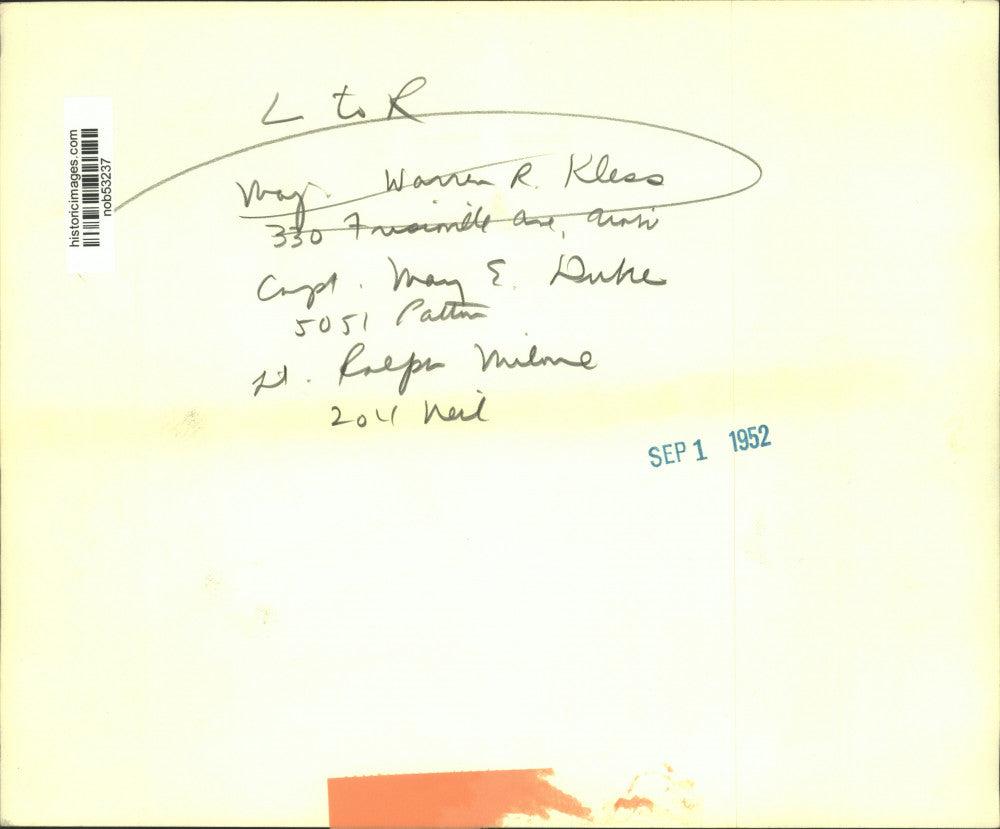 historicimages.com
nob53237
L to R
Maj. Warren R. Kless
330 Ave,
Capt. Mary E. Duke
5051 Patton
Lt. Ralph Milone
204 Neil
SEP 1 1952